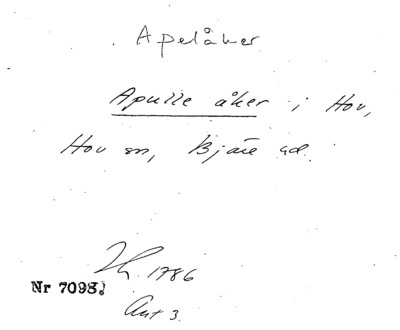 Apelåker
Apulle åker i Hov,
Hov sn, Bjäre hd.
1786
Nr 7098.
Akt 3.